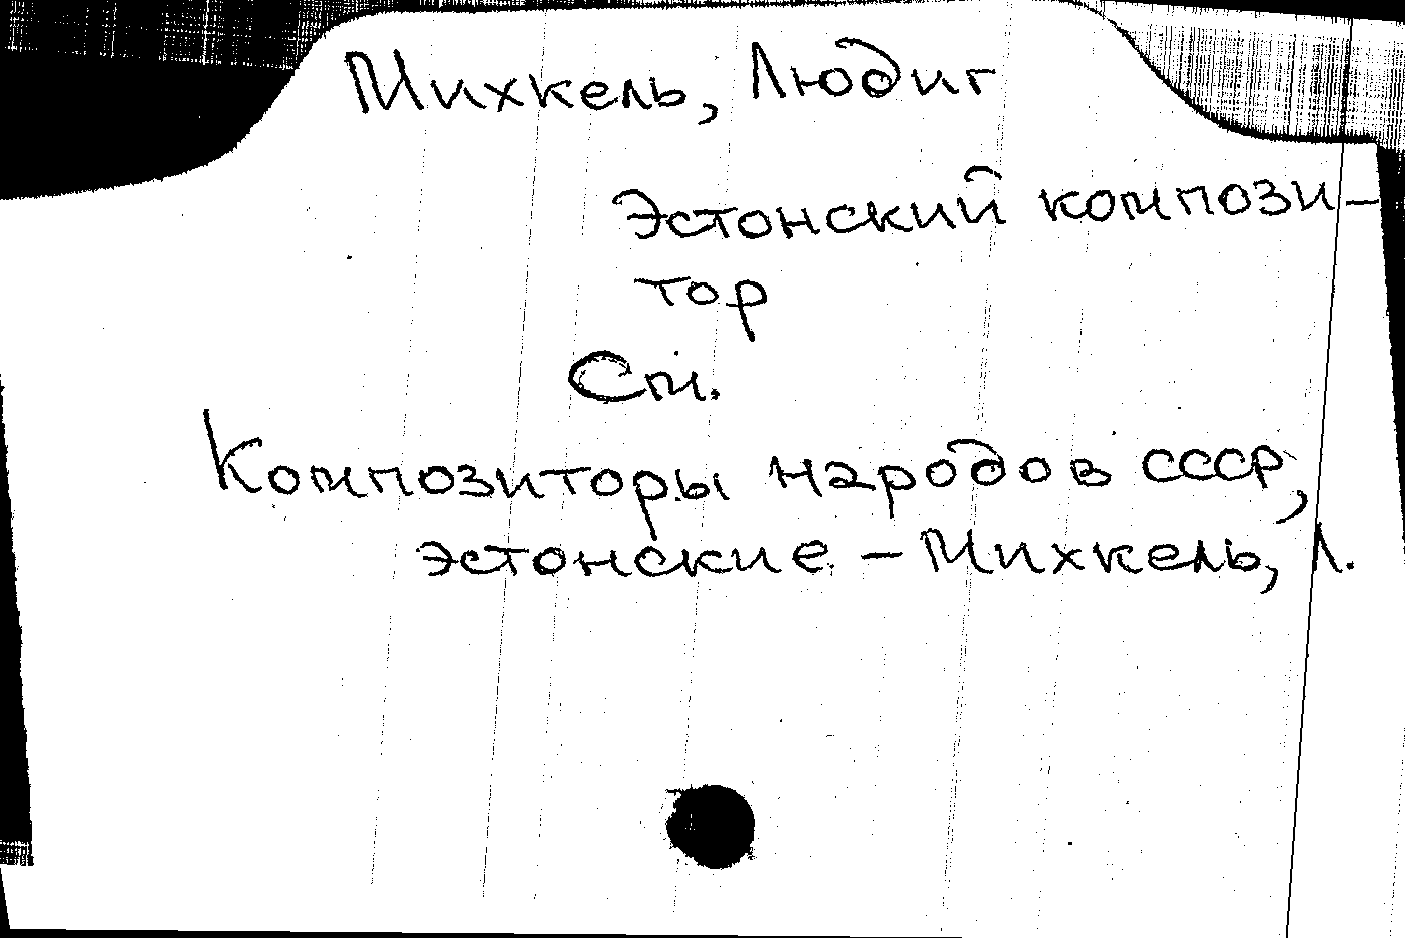 Михкель, Людиг
Эстонский компози-
тор
См.
Композиторы народов СССР,
эстонские - Михкель, Л.